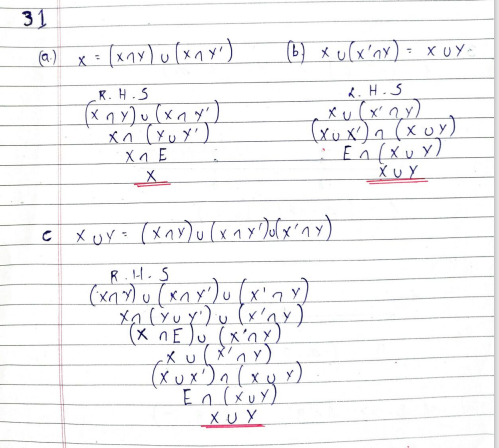 31
(a.) X = (X∩Y) ∪ (X∩Y')
(b) X ∪ (X'∩Y) = X ∪ Y.
R.H.S
(X∩Y) ∪ (X∩Y')
X∩ (Y∪Y')
X∩E
X
L.H.S
X ∪ (X'∩Y)
(X∪X') ∩ (X∪Y)
E∩ (X∪Y)
X∪Y
c X∪Y = (X∩Y) ∪ (X∩Y') ∪ (X'∩Y)
R.H.S
(X∩Y) ∪ (X∩Y') ∪ (X'∩Y)
X∩ (Y∪Y') ∪ (X'∩Y)
(X∩E) ∪ (X'∩Y)
X ∪ (X'∩Y)
(X∪X') ∩ (X∪Y)
E∩ (X∪Y)
X∪Y